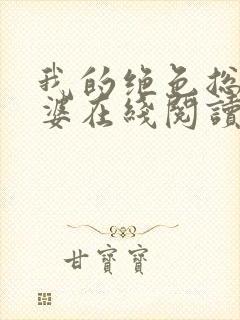 我的绝色总
婆在线阅读
甘寶寶